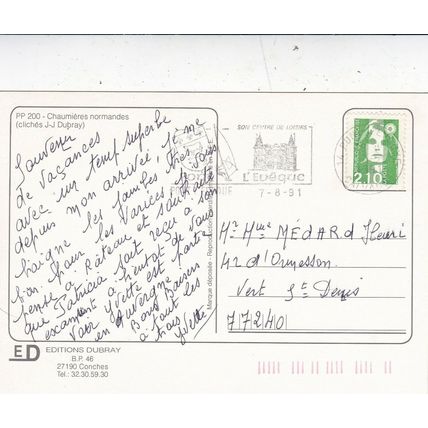 PP 200 - Chaumières normandes
(clichés J-J Dubray)
Souvenir
de vacances
avec un temp superbe
depuis mon arrivée, je me
baigne les jambes très
bon pour les varices
pense à Râteau et souhaite
que Patricia soit reçu à son
examen à bientôt de vous
voir Yvette est partie
en Auvergne
Bons Baisers
à tout les
trois Yvette
ED
EDITIONS DUBRAY
B.P. 46
27190 Conches
Tel.: 32.30.59.30
Marque déposée - Reproduction
SON CENTRE DE LOISIRS
L'EVÊQUE
7-8-91
2,10
Mr Mme MÉDARD Henri
42 d'Ormesson
Vert St Denis
77240